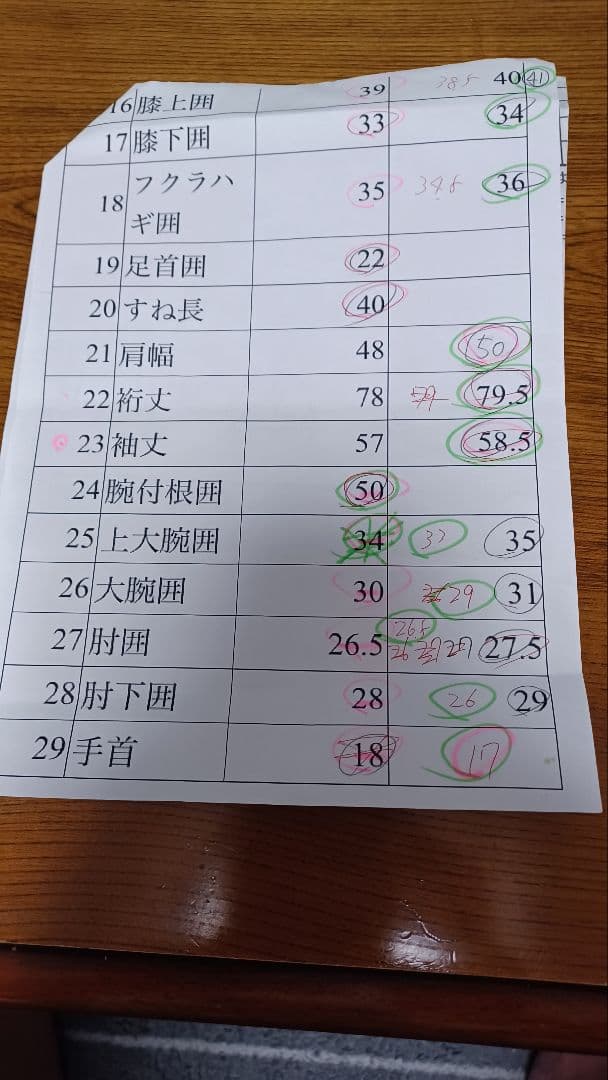 16 膝上囲 39 38.5 40 41
17 膝下囲 33 34
18 フクラハ
ギ囲 35 34.5 36
19 足首囲 22
20 すね長 40
21 肩幅 48 50
22 裄丈 78 79.5
23 袖丈 57 58.5
24 腕付根囲 50
25 上大腕囲 34 35
26 大腕囲 30 29 31
27 肘囲 26.5 26.5 26 27 27.5
28 肘下囲 28 26 29
29 手首 18 17